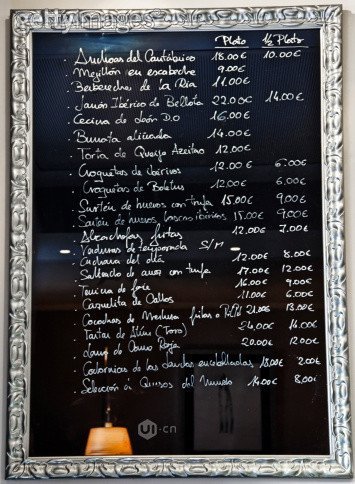 gettyimages
Plato ½ Plato
· Anchoas del Cantábrico 18.00€ 10.00€
· Mejillón en escabeche 9.00€
· Berberecho de la Ría 11.00€
· Jamón Ibérico de Bellota 22.00€ 14.00€
· Cecina de León D.O 16.00€
· Burrata aliñada 14.00€
· Torta de Queso 12.00€
· Croquetas de 12.00€ 6.00€
· Croquetas de Boletus 12.00€ 6.00€
· Sartén de huevos con trufa 15.00€ 9.00€
· Sartén de huevos 15.00€ 9.00€
· Alcachofas fritas 12.00€ 7.00€
· Verduras de temporada S/M
· Cuchara del día 12.00€ 8.00€
· Salteado de con trufa 17.00€ 12.00€
· Terrina de foie 16.00€ 9.00€
· Cazuelita de Callos 11.00€ 6.00€
· Cocochas de Merluza fritas o Pil Pil 21.00€ 13.00€
· Tartar de Atún (Toro) 24.00€ 16.00€
· Lomo de Roja 20.00€ 12.00€
· de las 18.00€ 2.00€
· Selección de Quesos del Mundo 14.00€ 8.00€
UI·cn